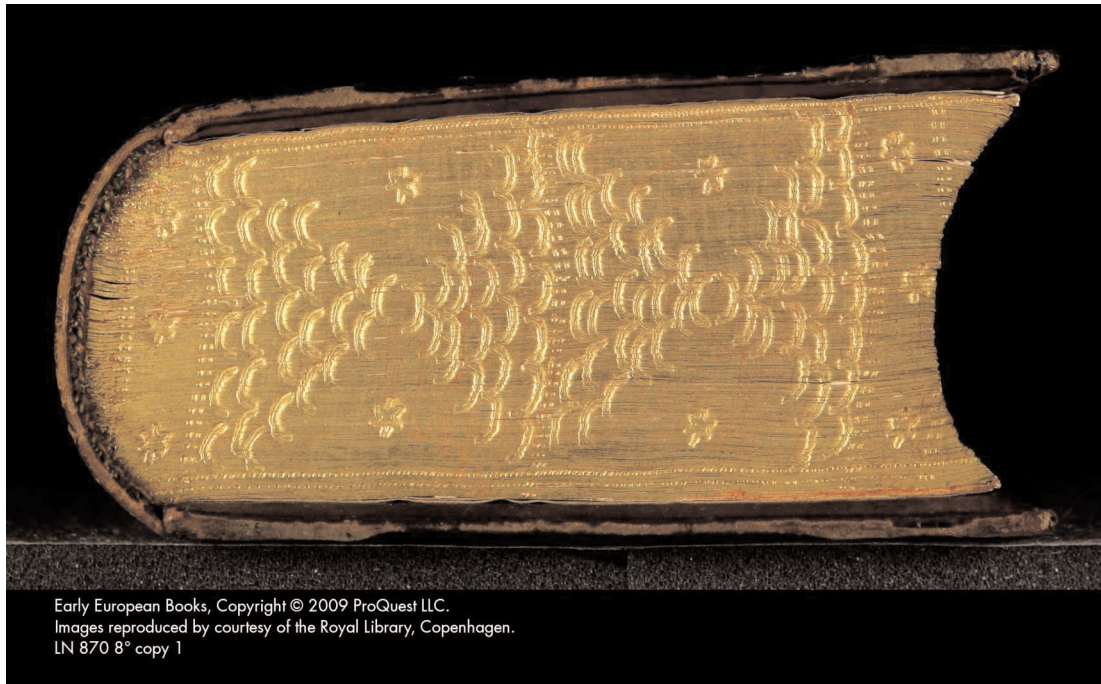 Early European Books, Copyright © 2009 ProQuest LLC.
Images reproduced by courtesy of the Royal Library, Copenhagen.
LN 870 8° copy 1